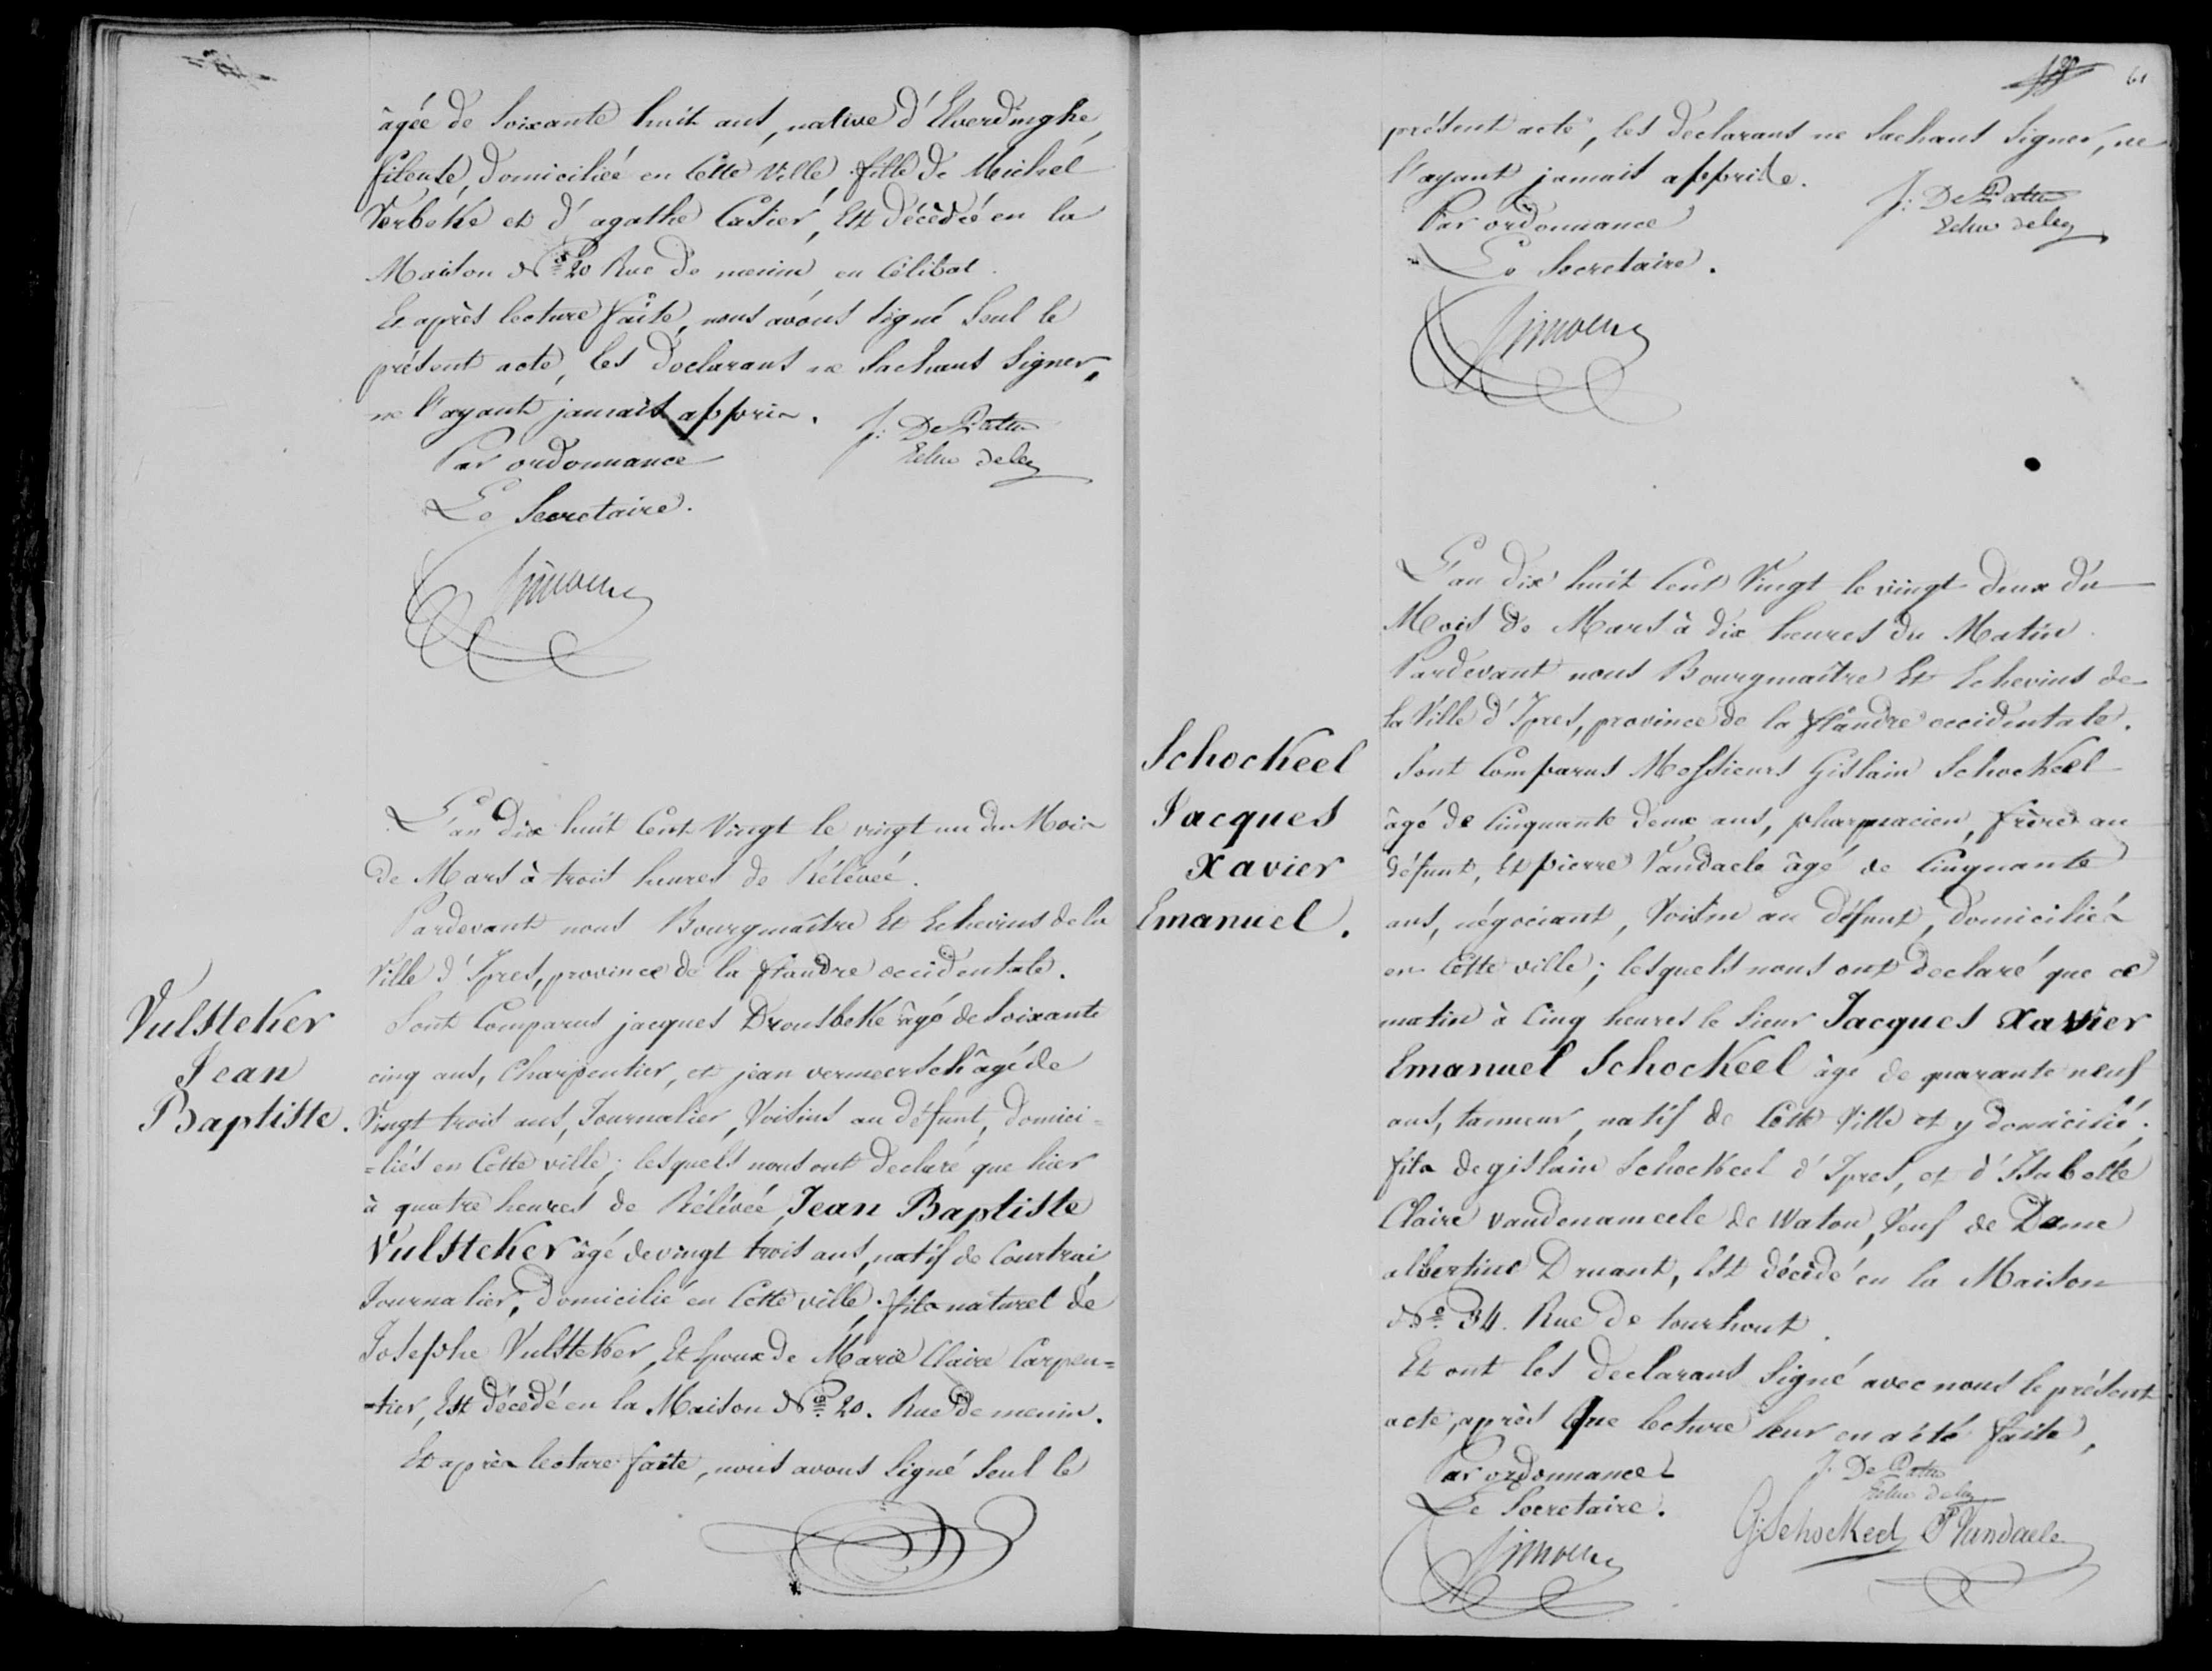 âgée de Soixante huit ans, native d'Elverdinghe,
fileuse, Domiciliée en Cette Ville, fille de Michel
Verbeke et d'agathe Casier, Est décédée en la
Maison N.º 20 Rue de menin en Célibat.
Et après lecture faite, nous avons signé Seul le
présent acte, les déclarans ne Sachans Signer,
ne l'ayant jamais appris.
J: De Patin
Echev deleg
Par ordonnance
Le Secretaire.
Simoens
L'an Dix huit Cent Vingt le vingt un du Mois
de Mars à trois heures de Rélévée.
Pardevant nous Bourgmaître Et Echevins de la
Ville d'Ipres, province de la flandre occidentale.
Vulsteker
Jean
Baptiste.
Sont Comparus jacques Dronsbeke âgé de Soixante
cinq ans, Charpentier, et jean vermeersch âgé de
Vingt trois ans, Journalier, Voisins au défunt, domici=
=liés en Cette ville; lesquels nous ont declaré que hier
à quatre heures de Rélévée Jean Baptiste
Vulsteker âgé de vingt trois ans, natif de Courtrai
Journalier, Domicilié en Cette ville, fils naturel de
Josephe Vulsteker, Et Epoux de Marie Claire Carpen=
=tier, Est décédé en la Maison N.º 20. Rue De menin.
Et après lecture faite, nous avons Signé Seul le
61
présent acte, les déclarans ne Sachans Signer, ne
l'ayant jamais appris.
J: De Patin
Echev deleg
Par ordonnance
Le Secretaire.
Simoens
L'an dix huit Cent Vingt le vingt deux du
Mois de Mars à dix heures du Matin.
Pardevant nous Bourgmaître Et Echevins de
la Ville d'Ipres, province de la flandre occidentale.
Schockeel
Jacques
Xavier
Emanuel.
Sont Comparus Messieurs Gislain Schockeel
âgé de Cinquante deux ans, pharmacien, frère au
défunt, Et pierre Vandaele âgé de Cinquante
ans, négociant, Voisin au défunt, domiciliés
en Cette ville; lesquels nous ont declaré que ce
matin à Cinq heures le Sieur Jacques Xavier
Emanuel Schockeel âgé de quarante neuf
ans, tanneur, natif de Cette Ville et y domicilié.
fils de gislain Schockeel d'Ipres, et d'Isabelle
Claire vandenameele de Watou, Veuf de Dame
albertine Druant, Est décédé en la Maison
N.º 34. Rue de tourhout.
Et ont les declarans Signé avec nous le présent
acte, après que lecture leur en a été faite,
Par ordonnance
Le Secretaire.
J. De Patin
Echev deleg
G: Schockeel P Vandaele
Simoens